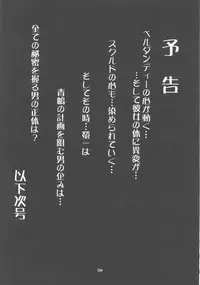 予告
ベルダンディーの心が動く…
…そして彼女の体に異変が…
スクルドの心も…染められていく…
そしてその時…螢一は
青嶋の計画を阻む男の企みは…
全ての秘密を握る男の正体は？
以下次号